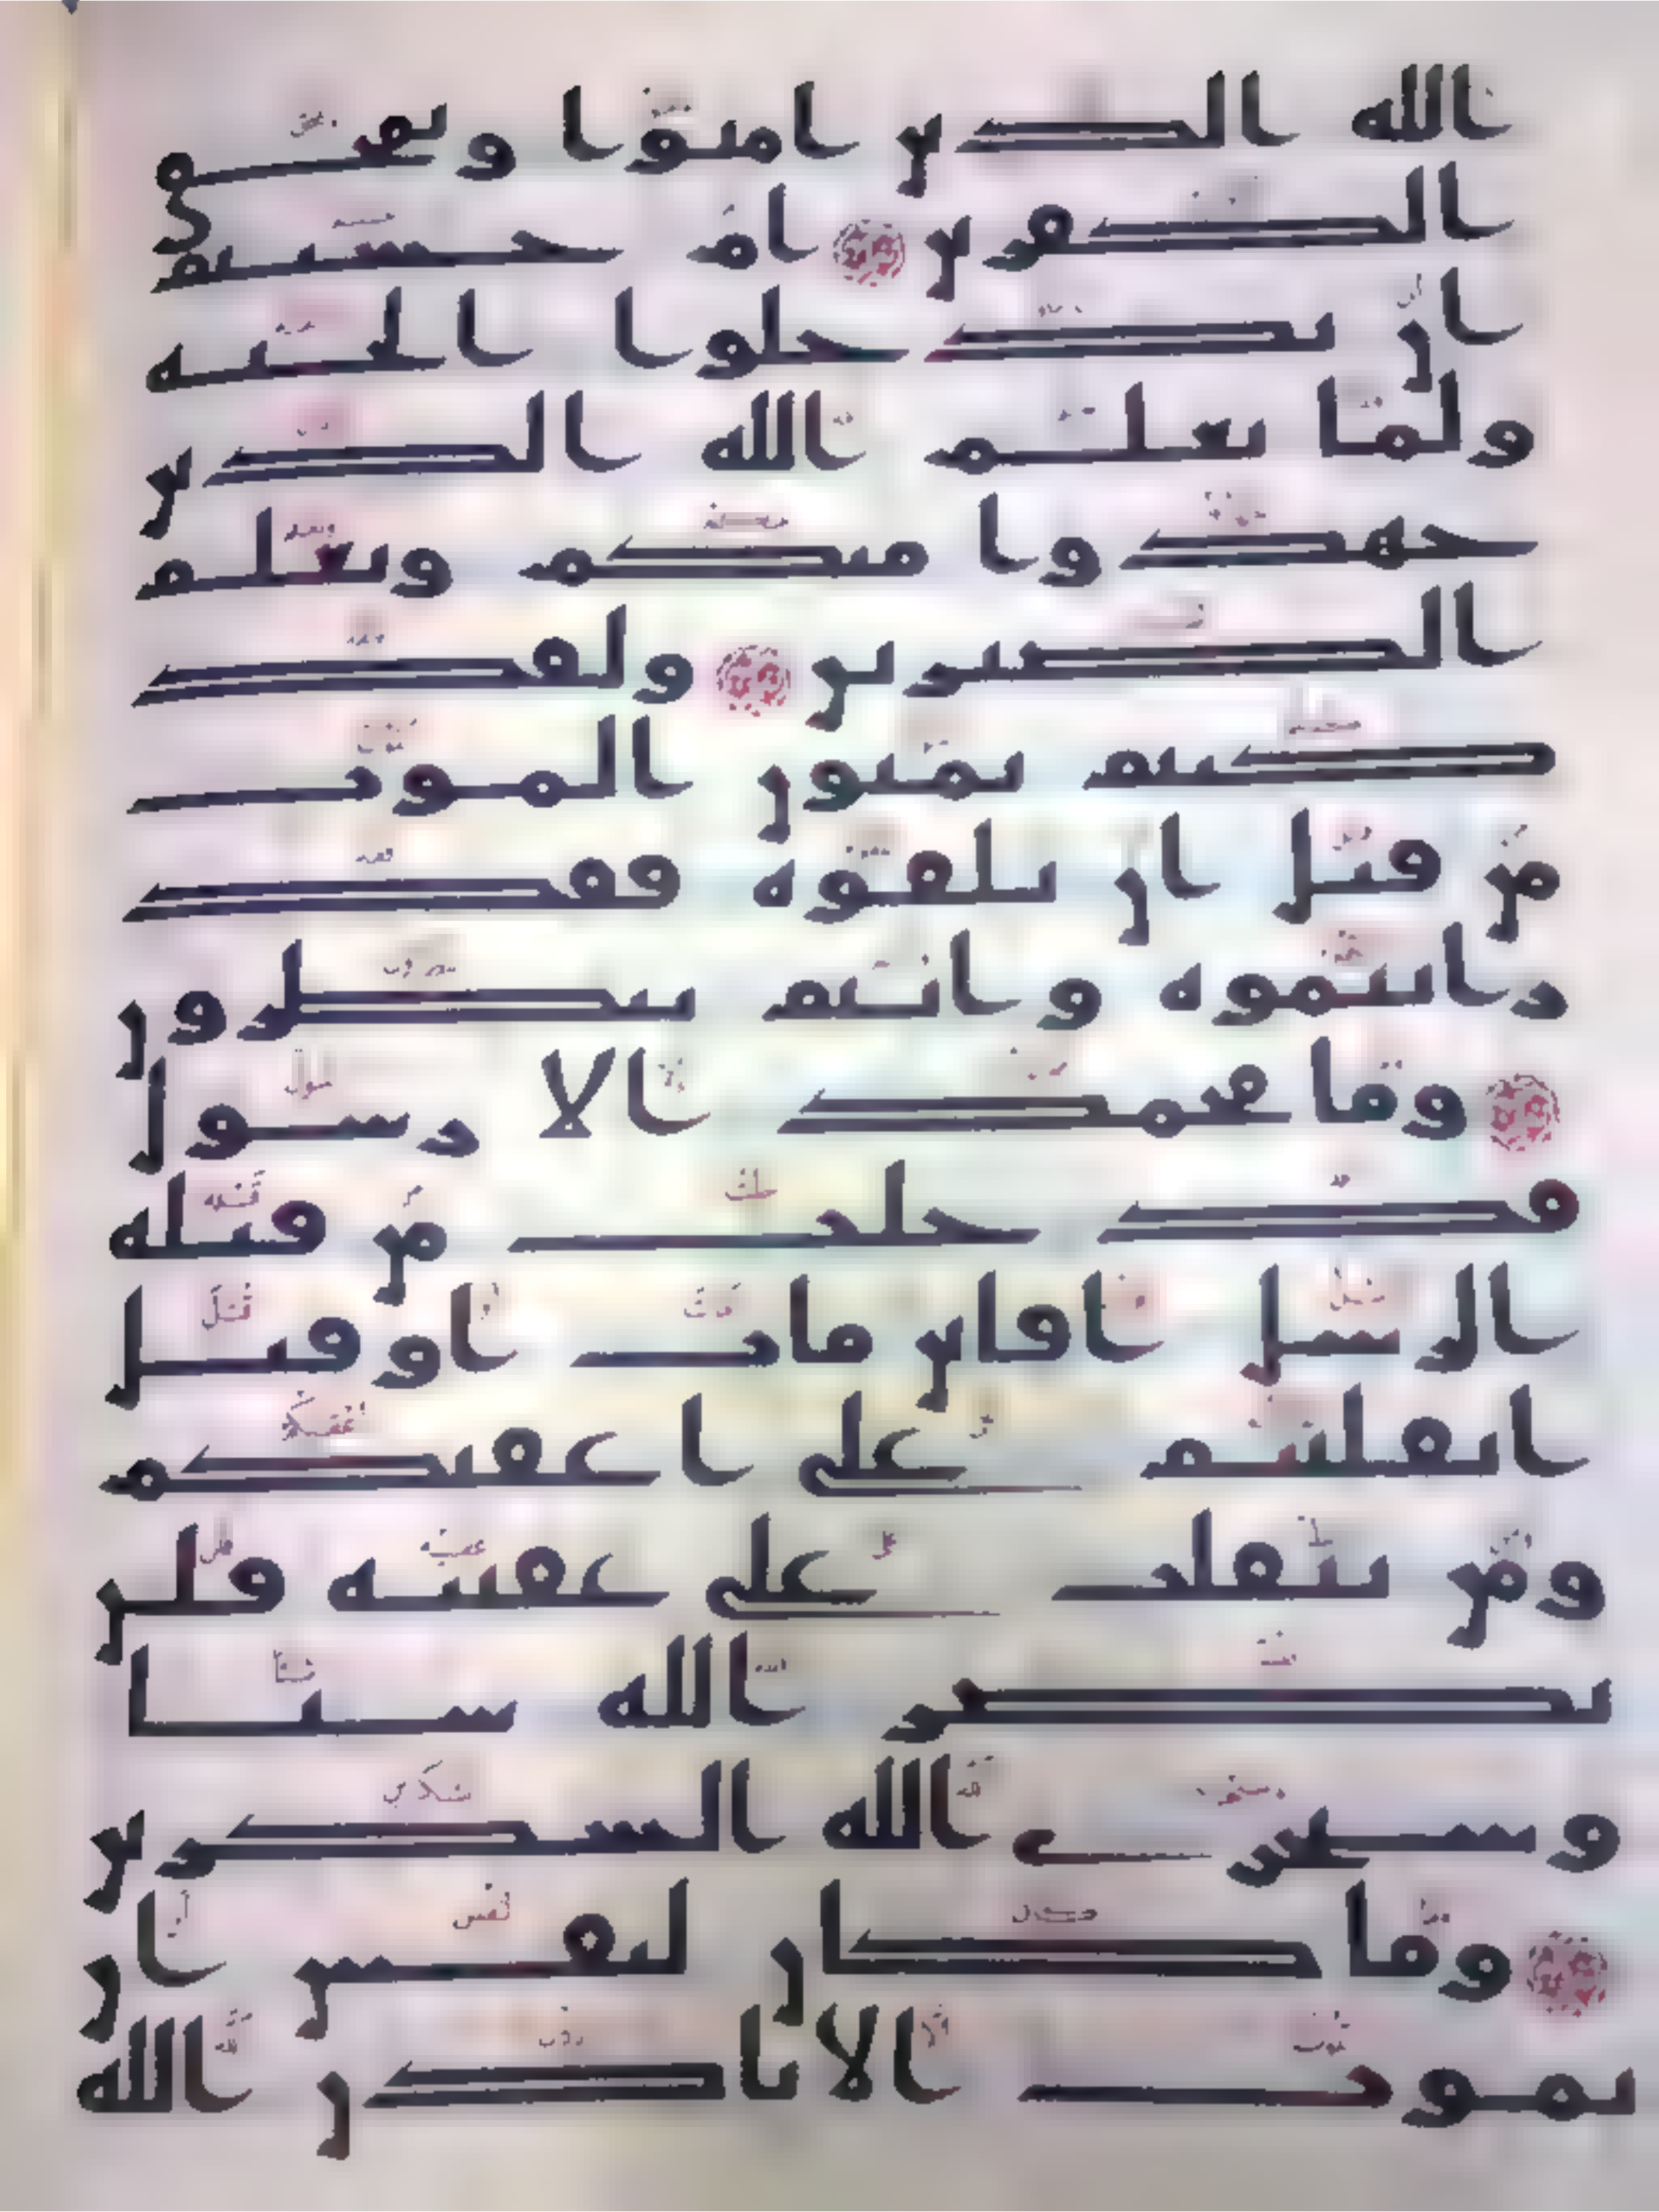 الله الذين امنوا ويمحق
الكفرين ام حسبتم
ان تدخلوا الجنه
ولما يعلم الله الذين
جهدوا منكم ويعلم
الصبرين ولقد
كنتم تمنون الموت
من قبل ان تلقوه فقد
رايتموه وانتم تنظرون
وما محمد الا رسول
قد خلت من قبله
الرسل افاين مات او قتل
انقلبتم على اعقبكم
ومن ينقلب على عقبيه فلن
يضر الله شيا
وسيجزى الله الشكرين
وما كان لنفس ان
تموت الا باذن الله